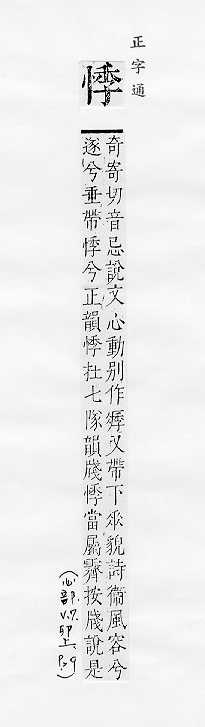 正字通
悸
奇寄切音忌說文心動別作痵又帶下垂貌詩衞風容兮
遂兮垂帶悸兮正韻悸在七隊韻牋悸當屬霽按牋說是
(心部.V.7.卯上.P.9)